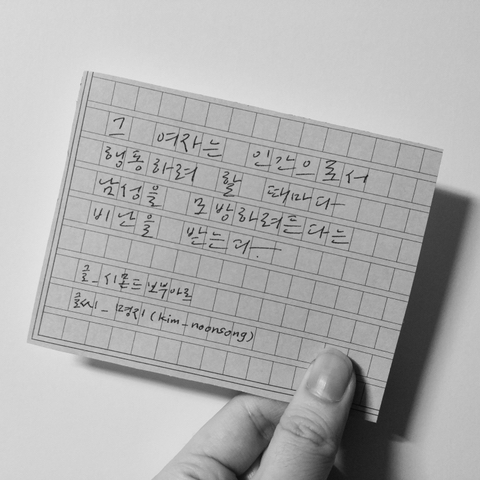 그 여자는 인간으로서
행동하려 할 때마다
남성을 모방하려든다는
비난을 받는다.
글_시몬드보부아르
글씨_명지(kim_noonsong)